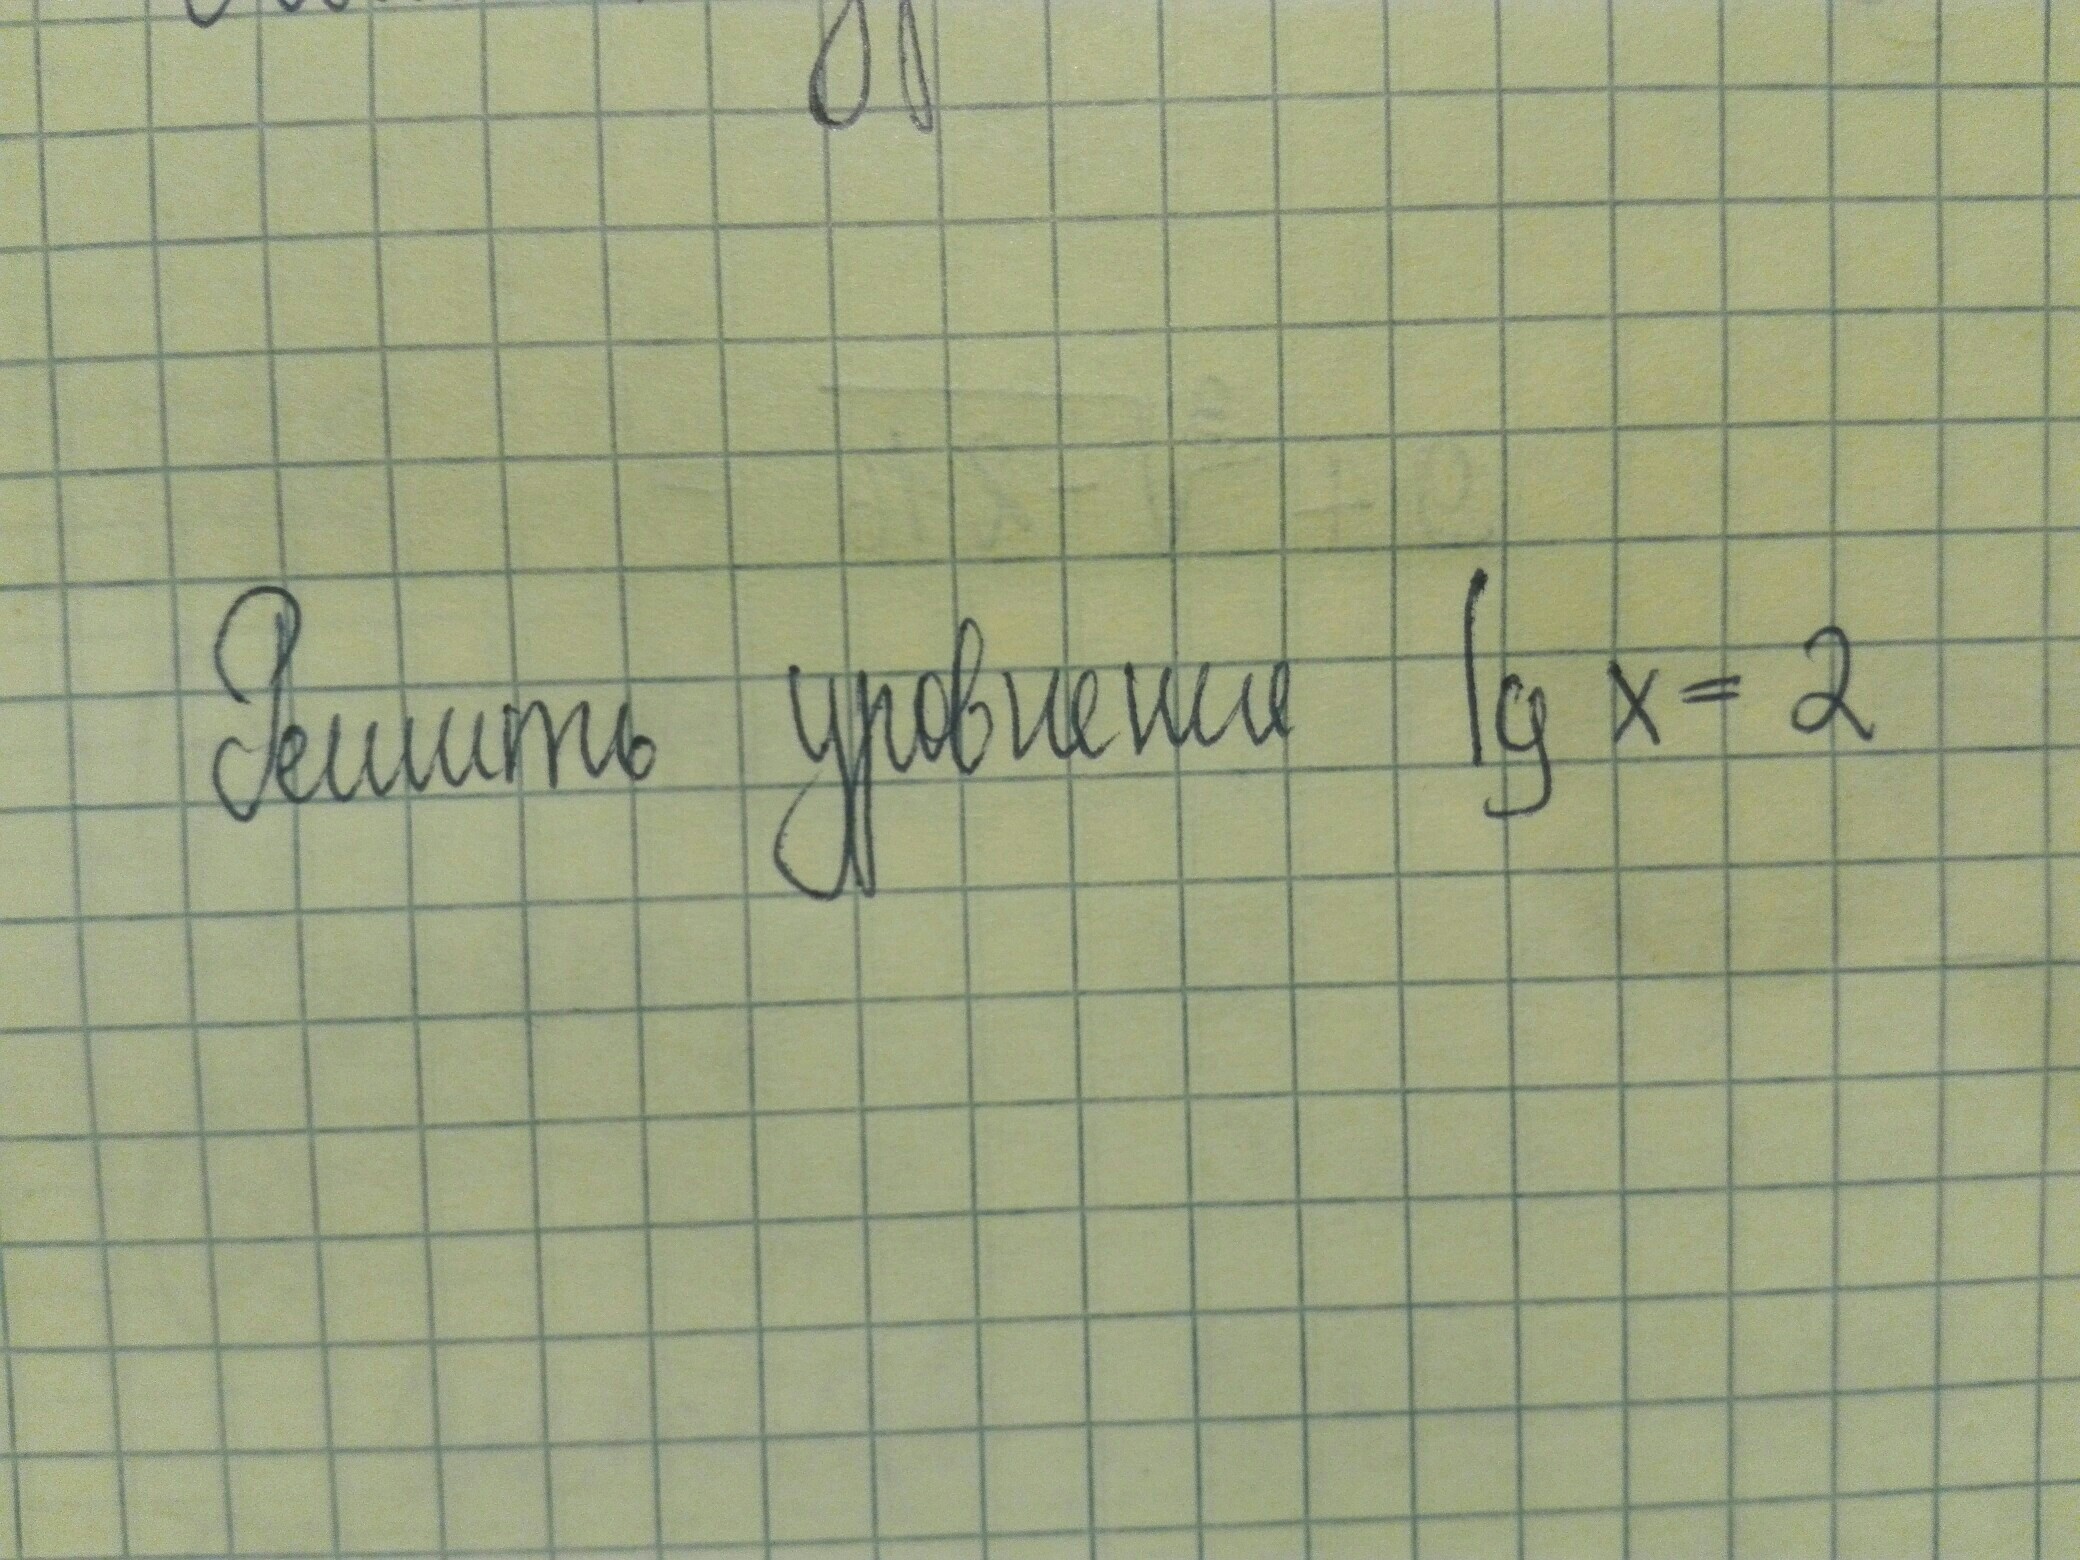 Решить уровнение lg x = 2